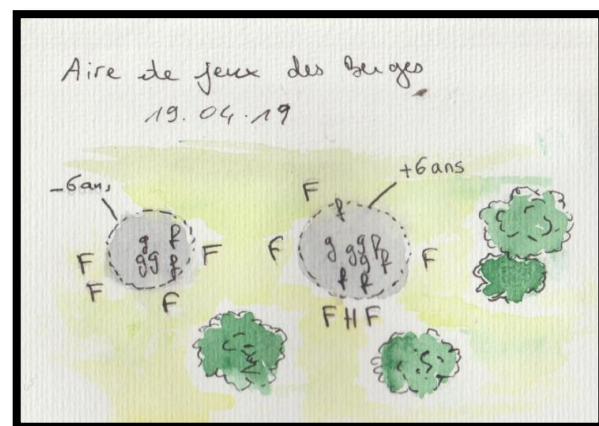 Aire de jeux des Berges
19.04.19
-6 ans
+6 ans
F
f
g f
g g f
f
F
F
F
F
F
g g g f
g f
f f
F
F H F